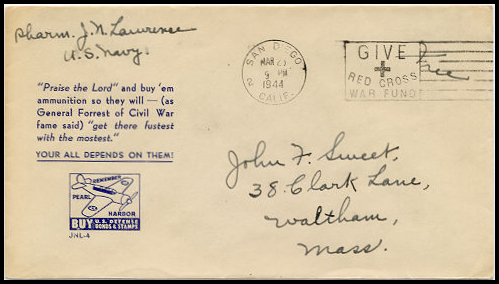 Pharm. J. N. Lawrence
U.S. Navy.
SAN DIEGO
2
MAR 23
9 PM
1944
CALIF.
GIVE
RED CROSS
WAR FUND
Free
"Praise the Lord" and buy 'em
ammunition so they will — (as
General Forrest of Civil War
fame said) "get there fustest
with the mostest."
YOUR ALL DEPENDS ON THEM!
REMEMBER
PEARL
HARBOR
BUY U.S. DEFENSE
BONDS & STAMPS
JNL-4
John F. Sweet,
38 Clark Lane,
Waltham,
Mass.